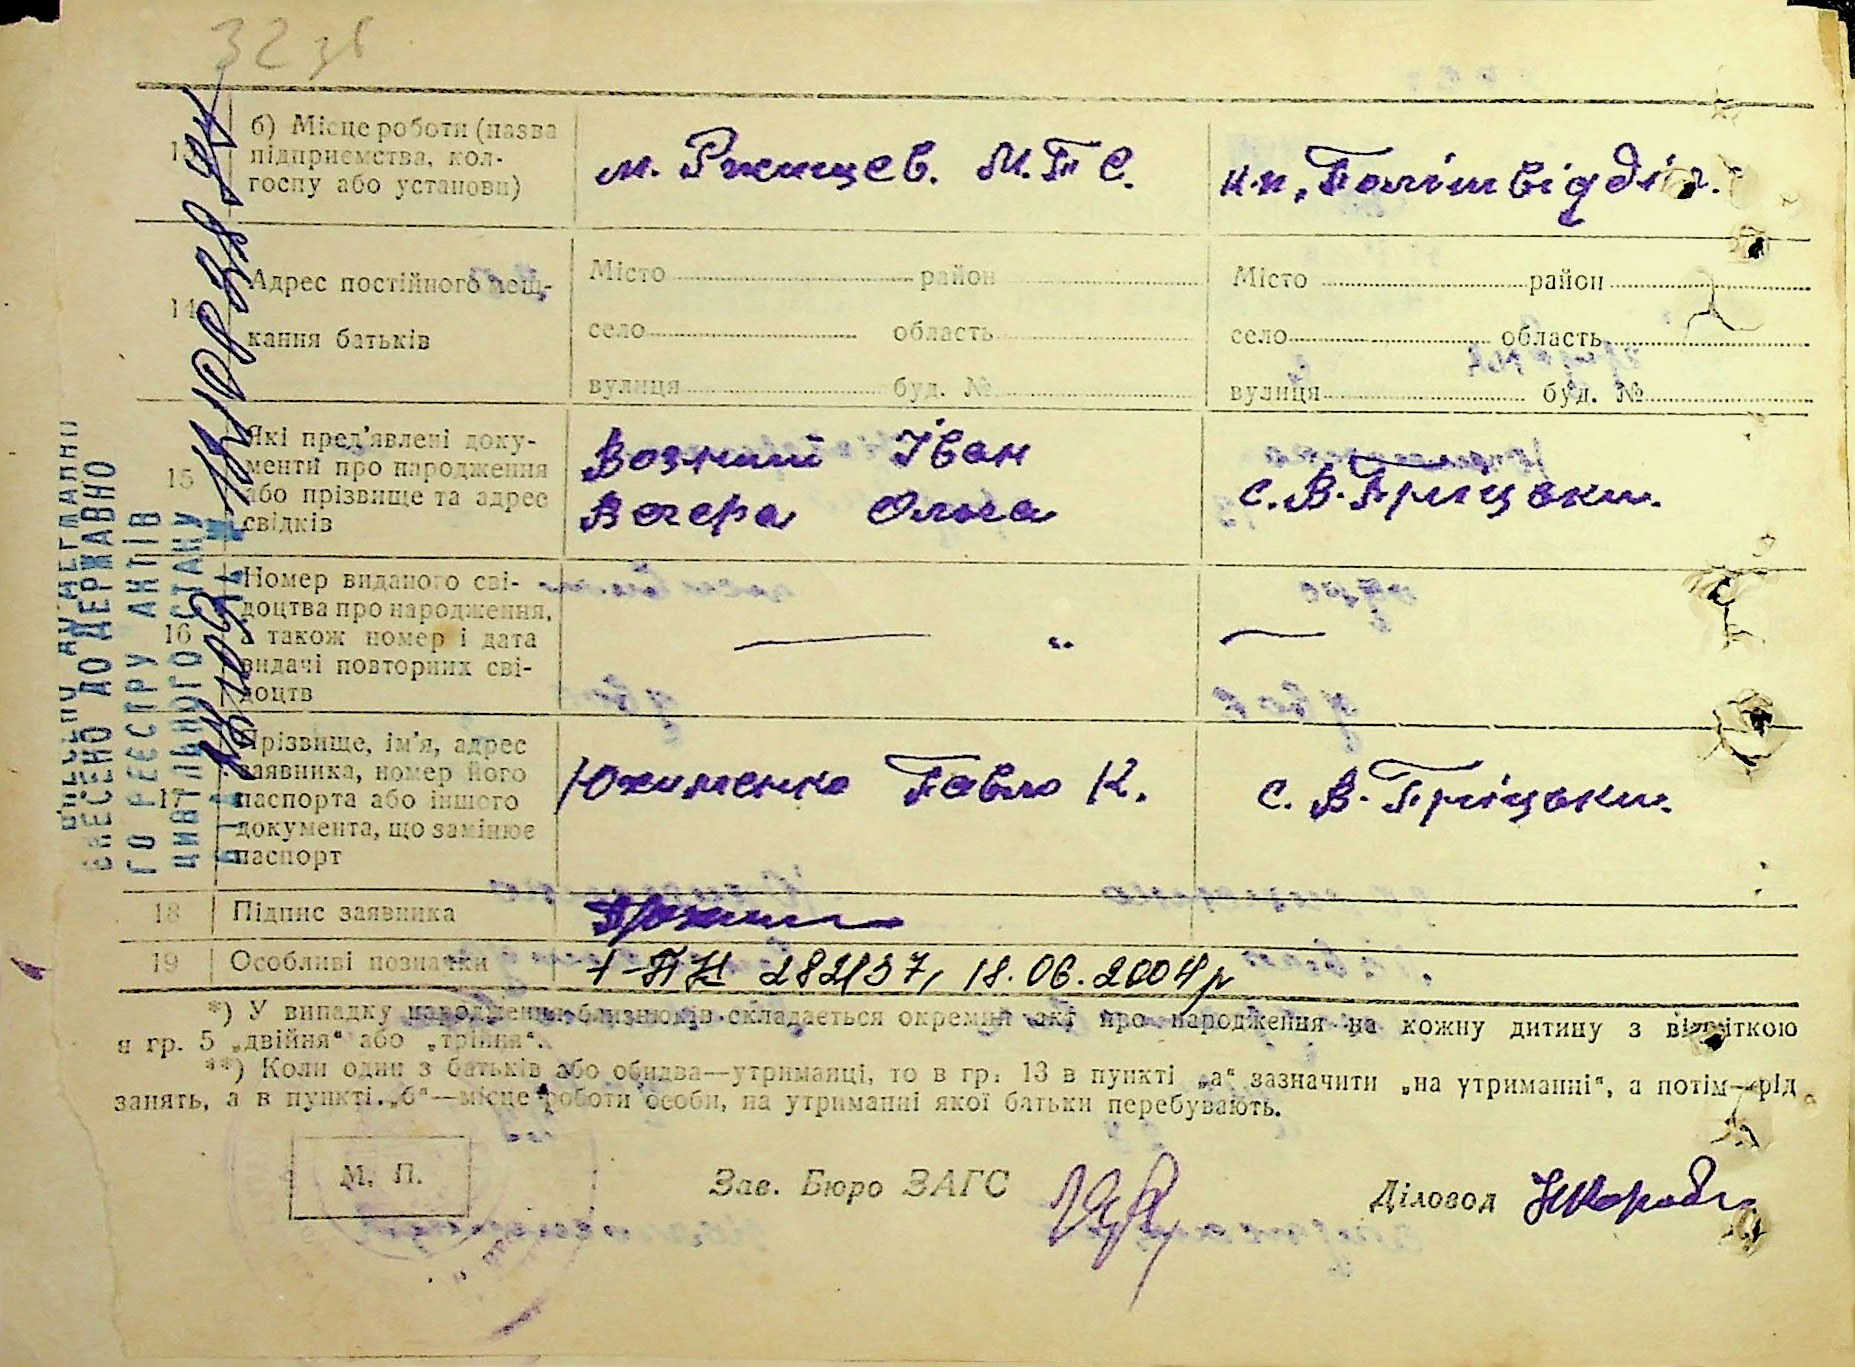 32 зв
13 б) Місце роботи (назва підприємства, колгоспу або установи)
м. Ржищев. М.Т.С.
Політвідділ.
14 Адрес постійного мешкання батьків
Місто район
село область
вулиця буд. №
Місто район
село область
вулиця буд. №
15 Які пред'явлені документи про народження або прізвище та адрес свідків
Возний Іван
Вечера Ольга
с. В-Пріцьки.
16 Номер виданого свідоцтва про народження, а також номер і дата видачі повторних свідоцтв
— „ —
17 Прізвище, ім'я, адрес заявника, номер його паспорта або іншого документа, що замінює паспорт
Юхименко Павло К.
с. В-Пріцьки.
18 Підпис заявника
19 Особливі позначки
1-ПН 282137, 18.06.2004р
*) У випадку народження близнюків складається окремий акт про народження на кожну дитину з відміткою
в гр. 5 „двійня“ або „трійня“.
**) Коли один з батьків або обидва—утриманці, то в гр. 13 в пункті „а“ зазначити „на утриманні“, а потім—рід
занять, а в пункті „б“—місце роботи особи, на утриманні якої батьки перебувають.
М. П.
Зав. Бюро ЗАГС
Діловод
ВНЕСЕНО ДО ДЕРЖАВНО
ГО РЕЄСТРУ АКТІВ
ЦИВІЛЬНОГО СТАНУ